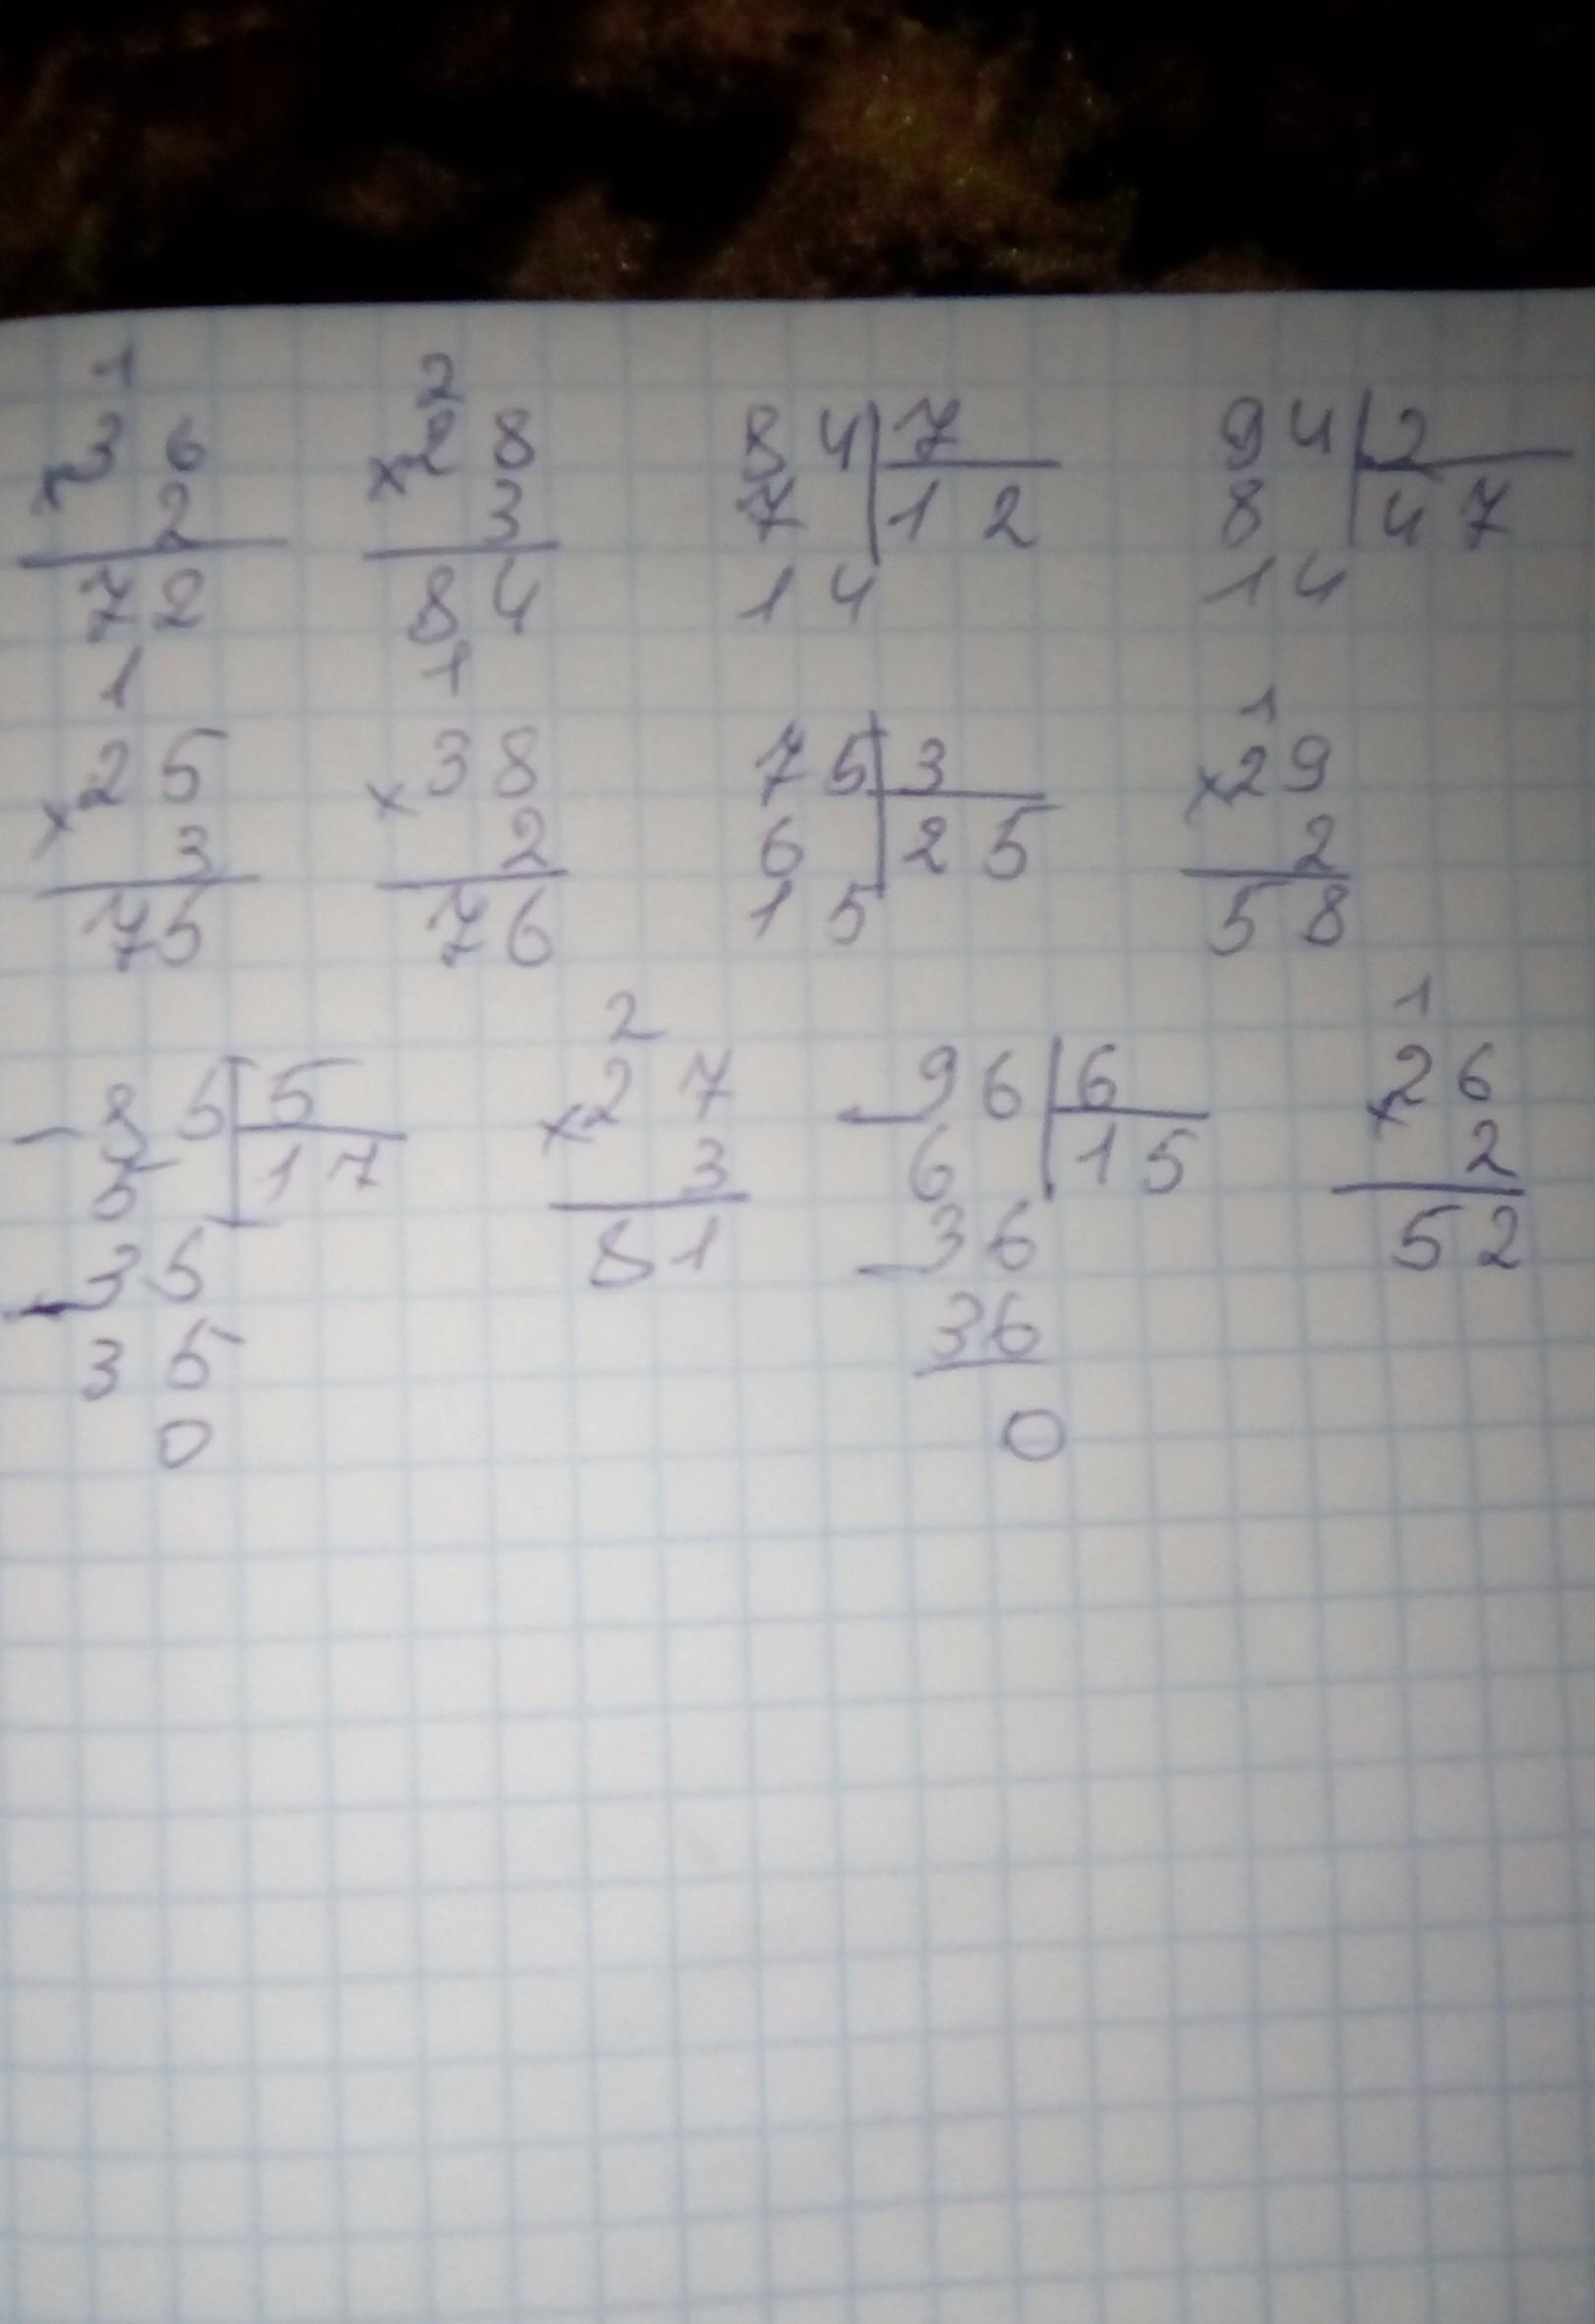 1 2
×36 ×28 84|7 94|2
2 3 7 |12 8 |47
72 84 14 14
1 1 1
×25 ×38 75|3 ×29
3 2 6 |25 2
75 76 15 58
2 1
-85|5 ×27 -96|6 ×26
5 |17 3 6 |15 2
-35 81 -36 52
35 36
0 0